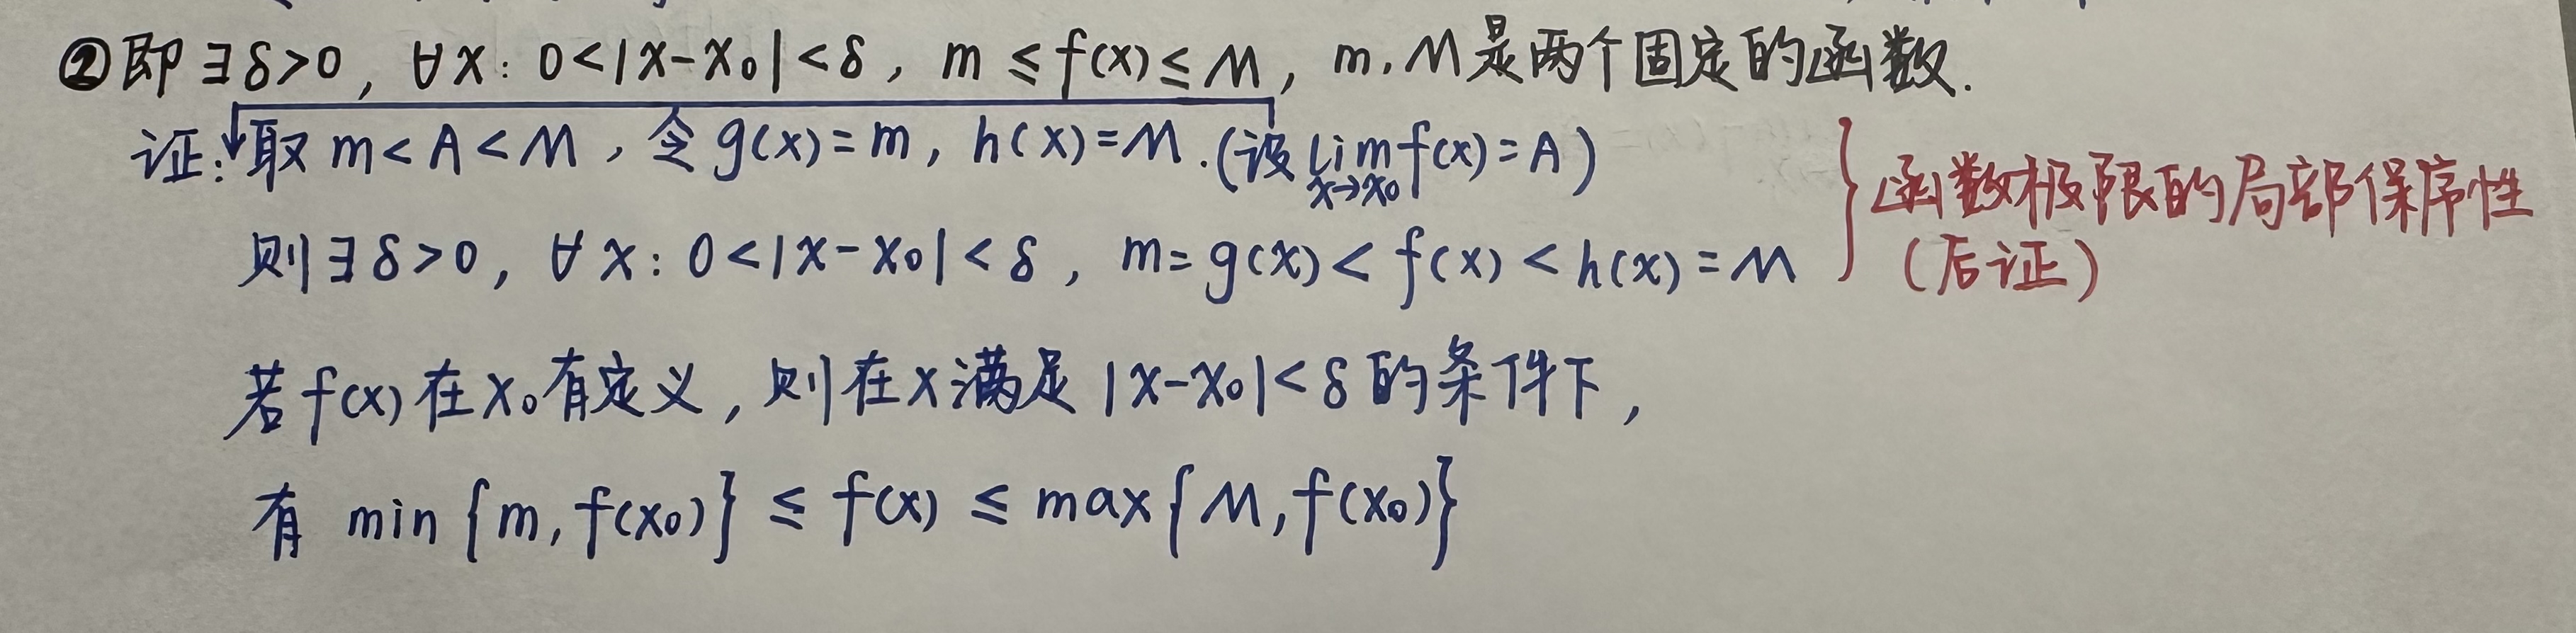 ②即∃δ>0, ∀x: 0<|x-x₀|<δ, m≤f(x)≤M, m,M是两个固定的函数.
证: 取m<A<M, 令g(x)=m, h(x)=M. (设lim_{x→x₀}f(x)=A)
则∃δ>0, ∀x: 0<|x-x₀|<δ, m=g(x)<f(x)<h(x)=M
函数极限的局部保序性
(后证)
若f(x)在x₀有定义, 则在x满足|x-x₀|<δ的条件下,
有 min{m,f(x₀)}≤f(x)≤max{M,f(x₀)}